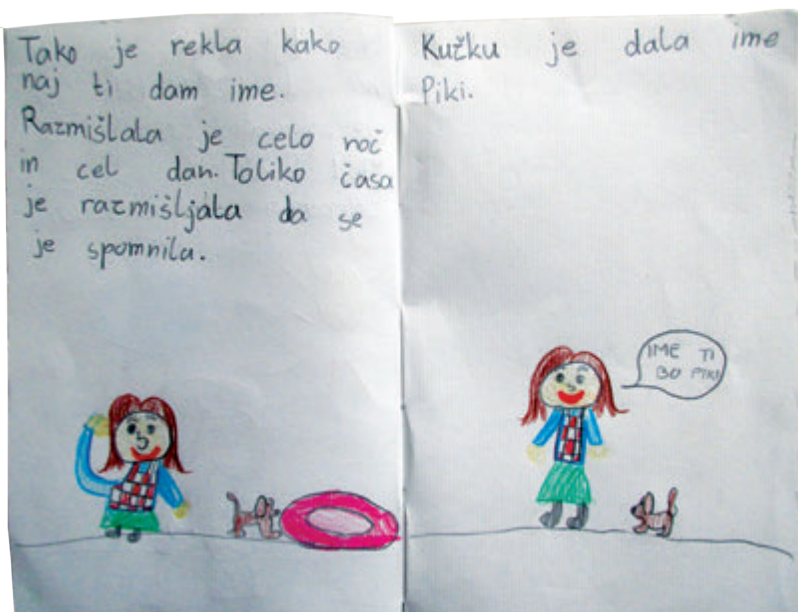 Tako je rekla kako
naj ti dam ime.
Razmišlala je celo noč
in cel dan. Toliko časa
je razmišljala da se
je spomnila.
Kužku je dala ime
Piki.
IME TI
BO PIKI